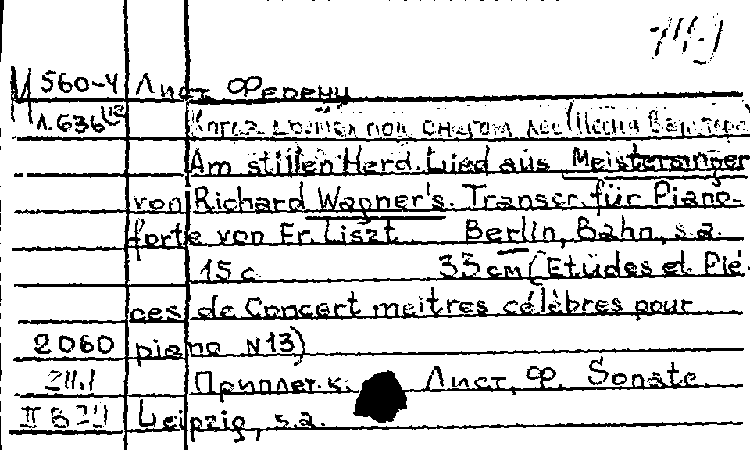 М 560-4 Лист Ференц
Л.636
под снегом лес (Песня
Am stillen Herd. Lied aus Meistersinger
von Richard Wagner's. Transcr. für Piano-
forte von Fr. Liszt. Berlin, Bahn, s.a.
15 с. 33 см (Etüdes et Piè-
ces de Concert meitres célèbres pour
2060 piano N13)
Приплет. к. Лист, Ф. Sonate.
Leipzig, s.a.